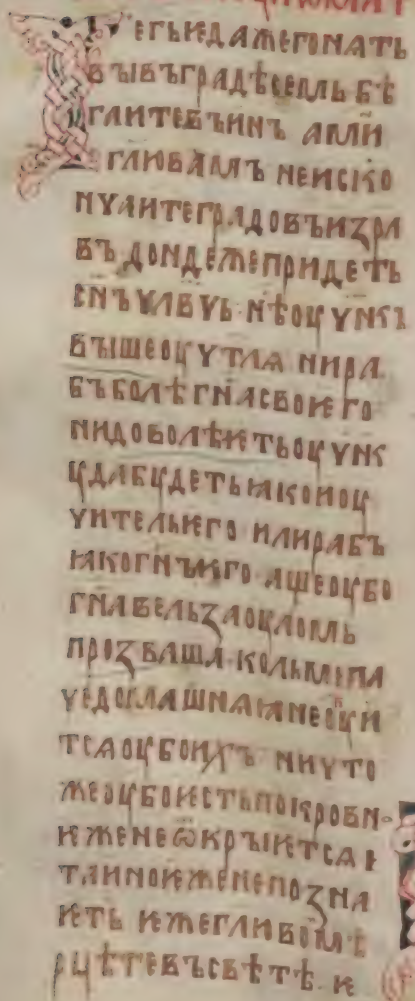 егькдажегонать
вывъградѣсемь бѣ
гаитевъинъ амн҃
глювамъ неиско
нчаитеградовъизра
въ дондежепридеть
сн҃ъчлвчь· нѣоучнкъ
вышеоучтлꙗ нира
бъболѣгн҃асвоѥго
нидоволѣѥтьоучнк
ꙋдабꙋдетьꙗкоиоу
чительѥго илирабъ
ꙗкогн҃ъѥго· ащеоубо
гн҃авельзаоуломь
прозваша· кольмипа
чедомашнаꙗнеоуби
тсаоубоихъ· ничто
жеоубоѥстьпокровн
ѥженеѿкрыѥтсѧ·
таиноѥженепозна
ѥть ѥжеглювамъ
рцѣтевъсвѣтѣ· и